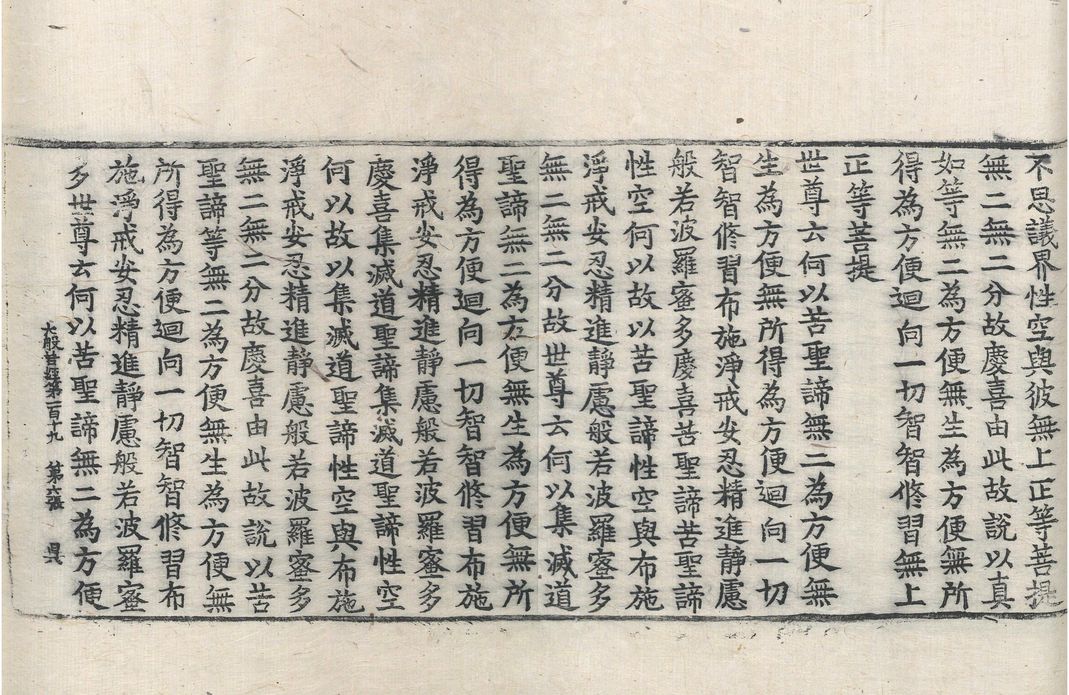 不思議界性空與彼無上正等菩提
無二無二分故慶喜由此故說以真
如等無二為方便無生為方便無所
得為方便迴向一切智智修習無上
正等菩提
世尊云何以苦聖諦無二為方便無
生為方便無所得為方便迴向一切
智智修習布施淨戒安忍精進靜慮
般若波羅蜜多慶喜苦聖諦苦聖諦
性空何以故以苦聖諦性空與布施
淨戒安忍精進靜慮般若波羅蜜多
無二無二分故世尊云何以集滅道
聖諦無二為方便無生為方便無所
得為方便迴向一切智智修習布施
淨戒安忍精進靜慮般若波羅蜜多
慶喜集滅道聖諦集滅道聖諦性空
何以故以集滅道聖諦性空與布施
淨戒安忍精進靜慮般若波羅蜜多
無二無二分故慶喜由此故說以苦
聖諦等無二為方便無生為方便無
所得為方便迴向一切智智修習布
施淨戒安忍精進靜慮般若波羅蜜
多世尊云何以苦聖諦無二為方便
大般若經第一百十九 第六張 昃